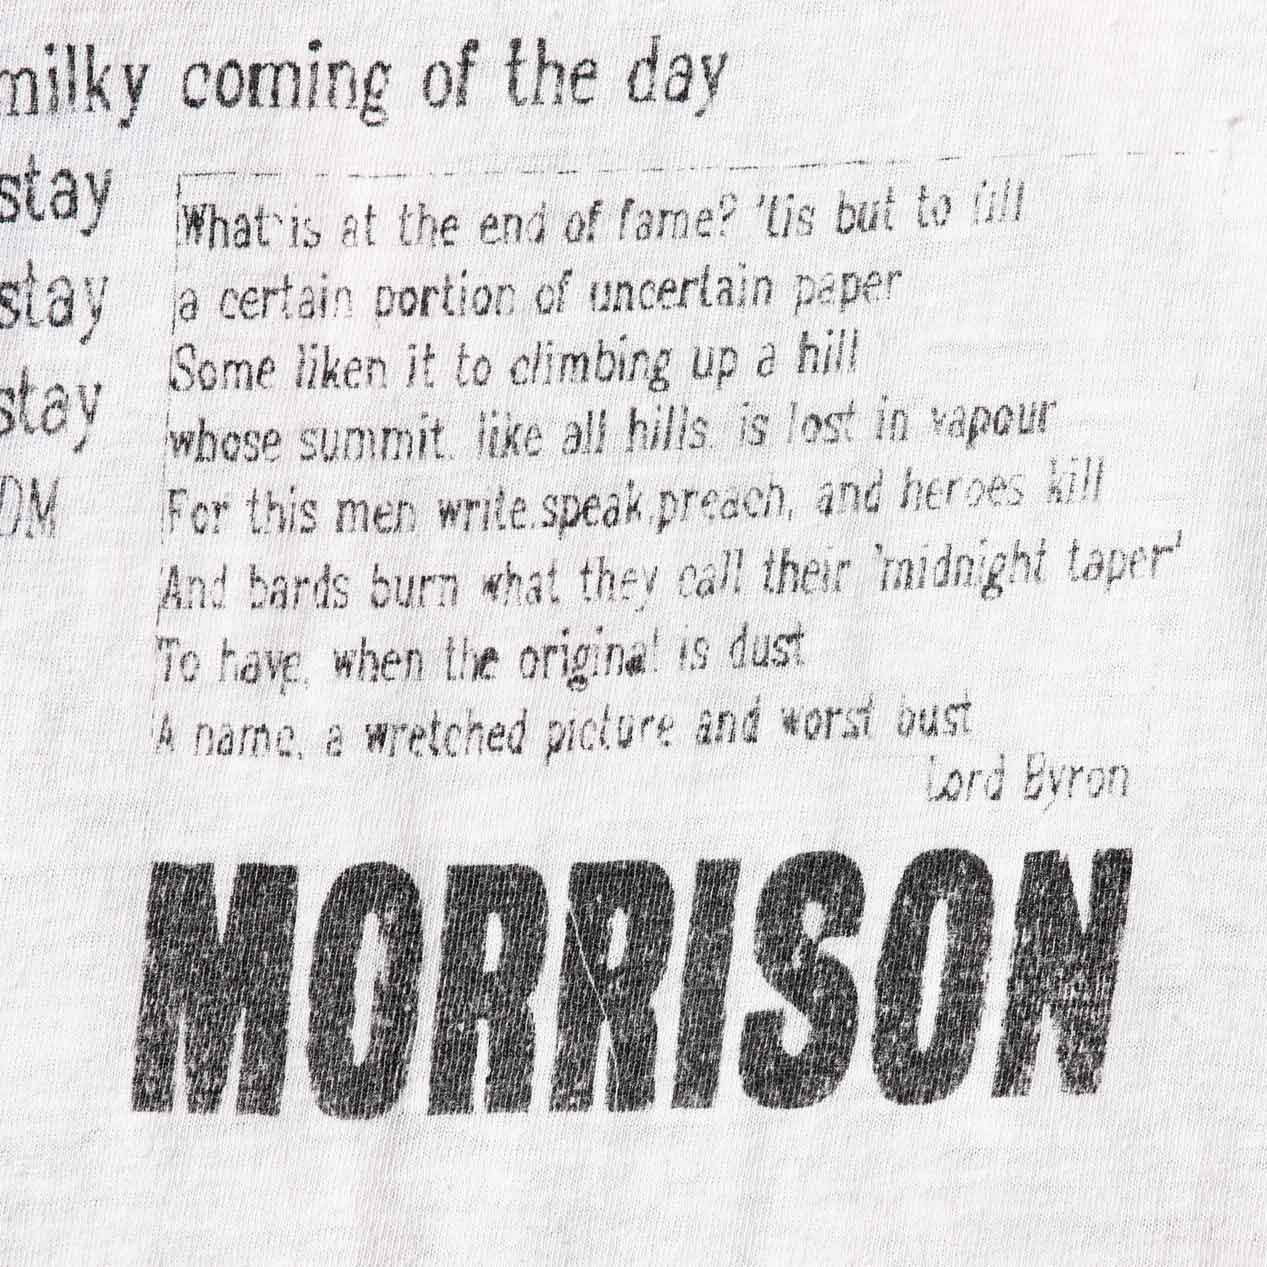 milky coming of the day
stay
stay
stay
What is at the end of fame? 'tis but to fill
a certain portion of uncertain paper
Some liken it to climbing up a hill
whose summit, like all hills, is lost in vapour
For this men write, speak, preach, and heroes kill
And bards burn what they call their 'midnight taper'
To have, when the original is dust
A name, a wretched picture and worst bust
Lord Byron
MORRISON